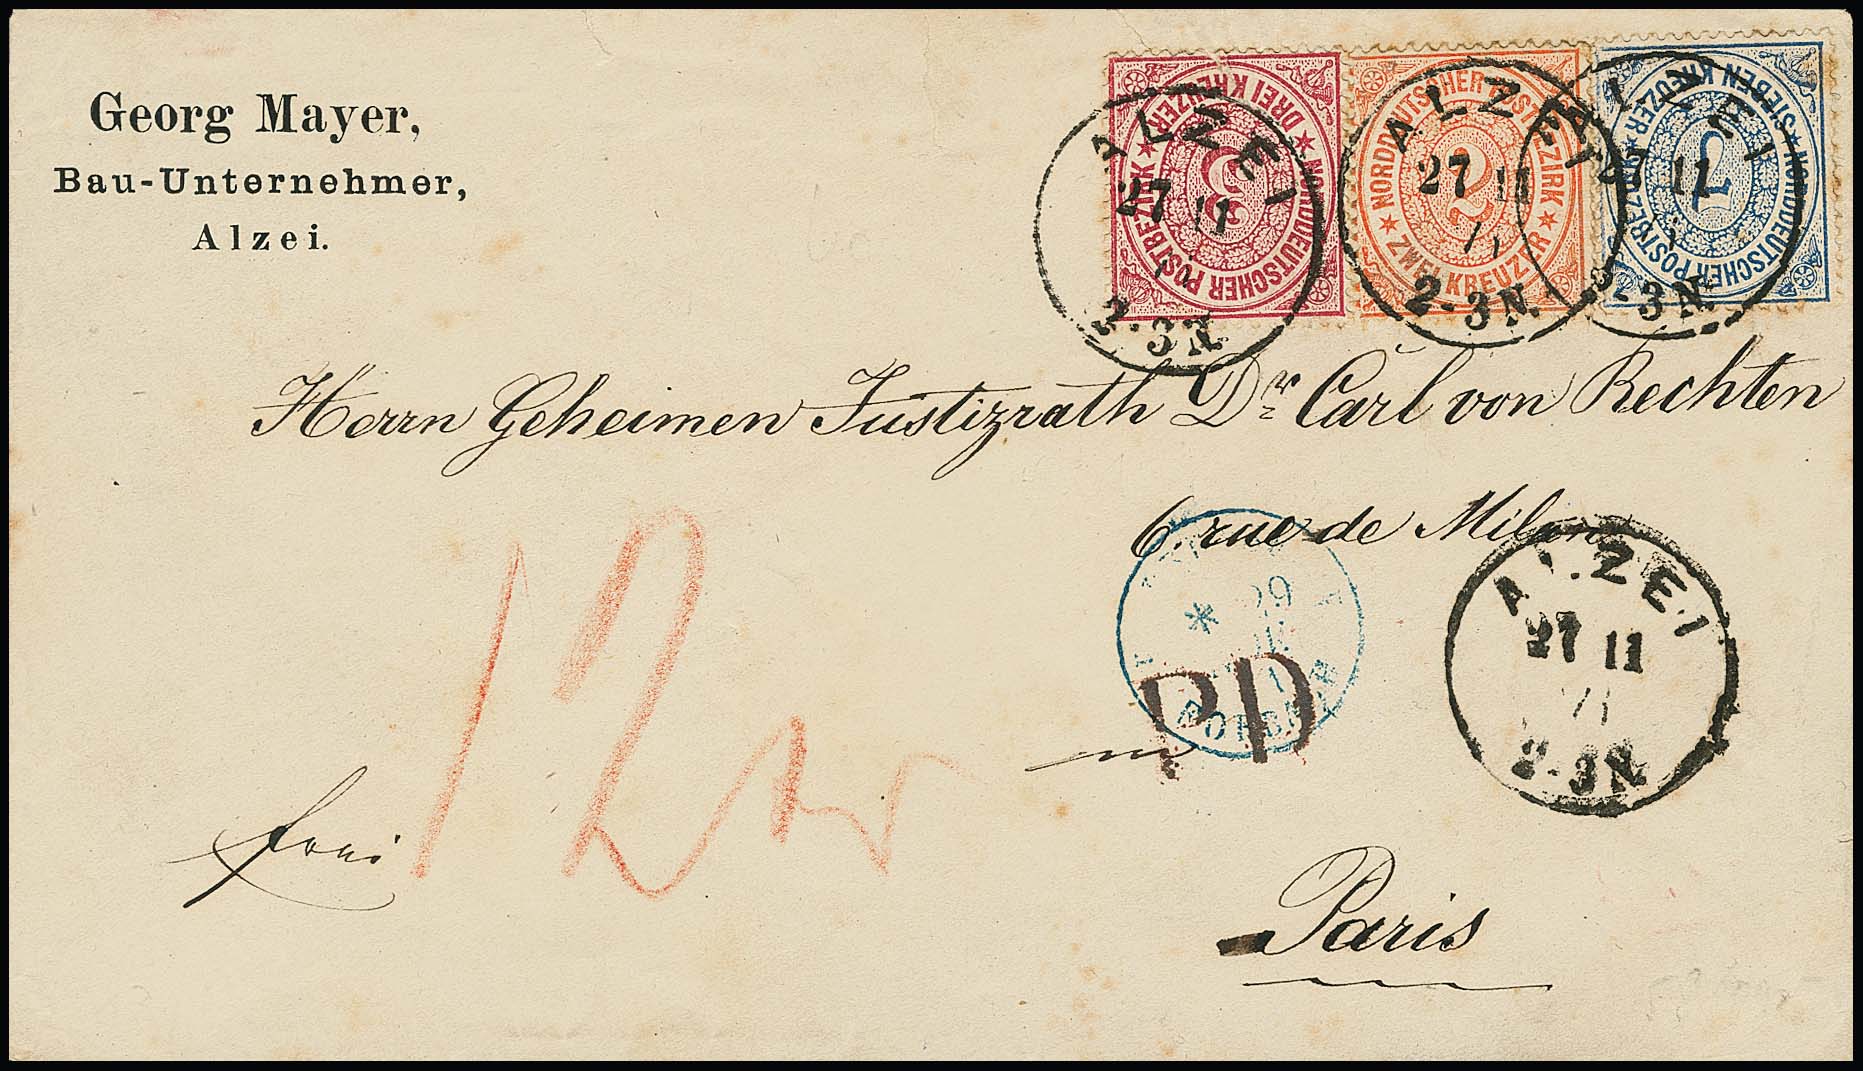 Georg Mayer,
Bau-Unternehmer,
Alzei.
NORDDEUTSCHER POSTBEZIRK
DREI KREUZER
3
NORDDEUTSCHER POSTBEZIRK
ZWEI KREUZER
2
NORDDEUTSCHER POSTBEZIRK
SIEBEN KREUZER
7
ALZEI
27 11
2-3N.
ALZEI
27 11
71
2-3N.
ALZEI
27 11
2-3N.
Herrn Geheimen Justizrath Dr Carl von Rechten
6. rue de Milan
29
FORBACH
PD
ALZEI
27 11
71
2-3N.
in
frei
12
Paris